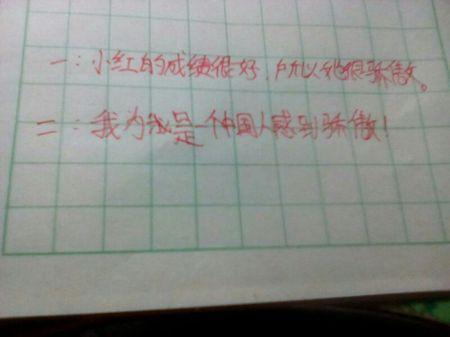 一：小红的成绩很好，所以她很骄傲。
二：我为我是一个中国人感到骄傲！